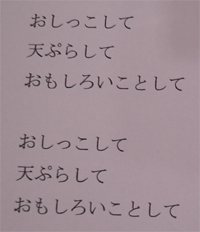 おしっこして
天ぷらして
おもしろいことして
おしっこして
天ぷらして
おもしろいことして